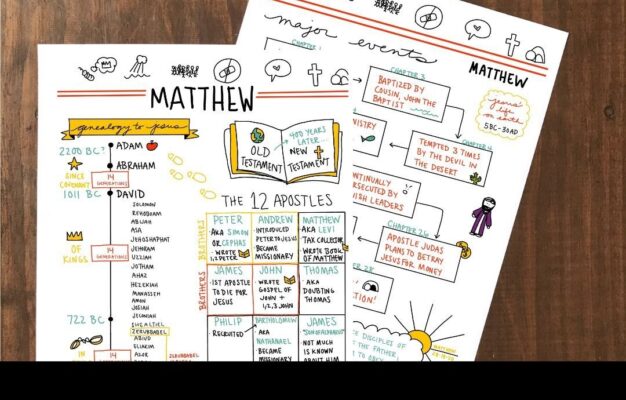 MATTHEW
genealogy to jesus
2200 BC?
ADAM
ABRAHAM
SINCE
COVENANT
14
GENERATIONS
1011 BC
DAVID
SOLOMON
REHOBOAM
ABIJAH
ASA
JEHOSHAPHAT
JEHORAM
UZZIAH
JOTHAM
AHAZ
HEZEKIAH
MANASSEH
AMON
JOSIAH
JECONIAH
OF
KINGS
14
GENERATIONS
722 BC
SHEALTIEL
ZERUBBABEL
ABIUD
ELIAKIM
AZOR
IN
14
ZERUBBABEL
OLD
TESTAMENT
400 YEARS
LATER...
NEW
TESTAMENT
THE 12 APOSTLES
BROTHERS
PETER
AKA SIMON
OR CEPHAS
WROTE
1+2 PETER
ANDREW
INTRODUCED
PETER TO JESUS
BECAME
MISSIONARY
MATTHEW
AKA LEVI
TAX COLLECTOR
WROTE BOOK
OF MATTHEW
BROTHERS
JAMES
1ST APOSTLE
TO DIE FOR
JESUS
JOHN
WROTE
GOSPEL OF
JOHN +
1,2,3 JOHN
THOMAS
AKA
DOUBTING
THOMAS
PHILIP
RECRUITED
BARTHOLOMEW
AKA
NATHANAEL
BECAME
MISSIONARY
JAMES
"SON OF ALPHAEUS"
NOT MUCH
IS KNOWN
ABOUT HIM
major events
MATTHEW
jesus'
life
on
earth
5BC-30AD
CHAPTER 1
CHAPTER 3
BAPTIZED BY
COUSIN, JOHN THE
BAPTIST
CHAPTER 4
TEMPTED 3 TIMES
BY THE DEVIL IN
THE DESERT
NISTRY
ONTINUALLY
RSECUTED BY
ISH LEADERS
CHAPTER 26
APOSTLE JUDAS
PLANS TO BETRAY
JESUS FOR MONEY
R 28
CTION!
CE DISCIPLES OF
THE FATHER,
TO OBEY
MATTHEW